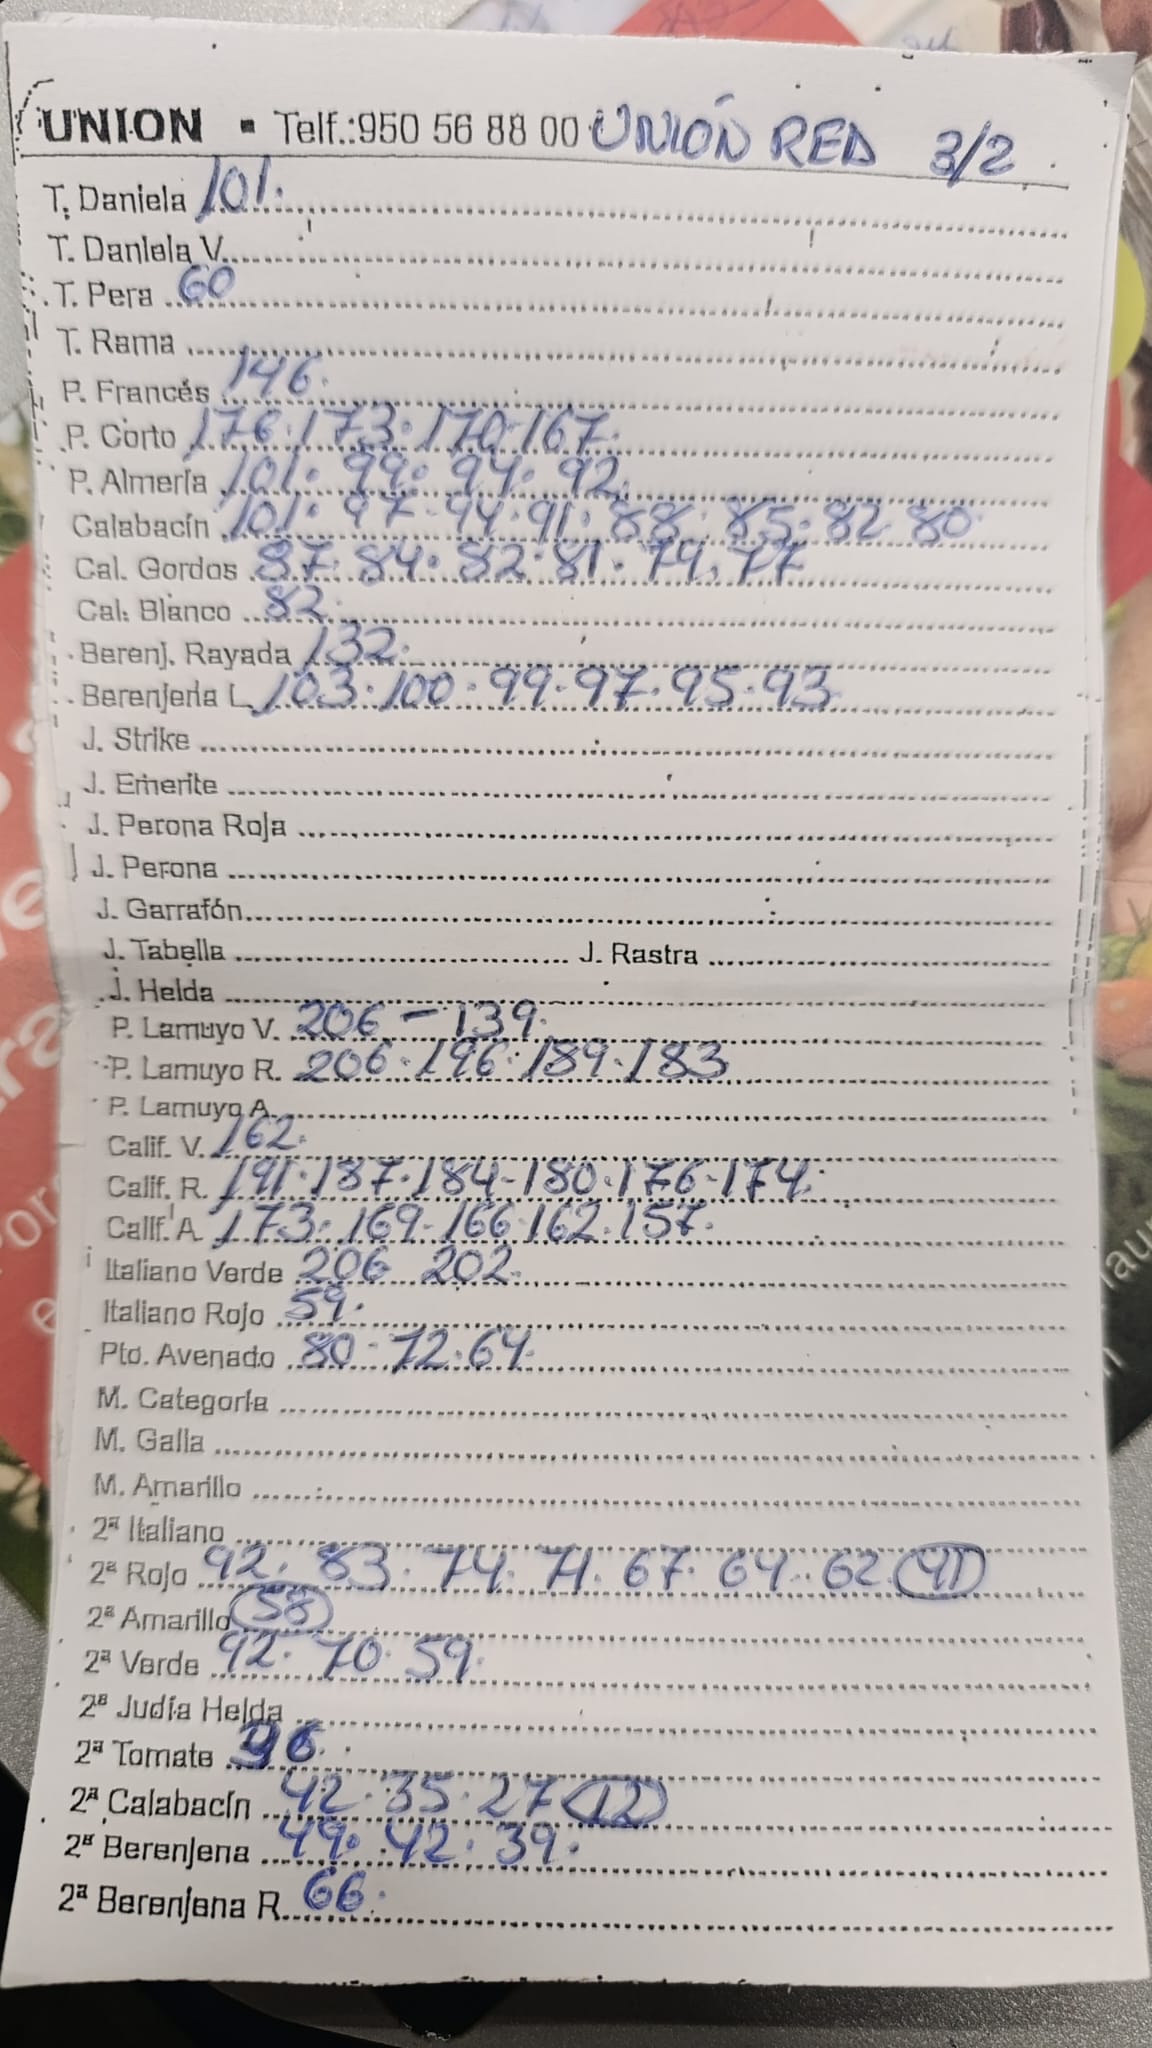 UNION • Telf.:950 56 88 00 UNIÓN RED 3/2
T. Daniela 101.
T. Daniela V.
T. Pera 60
T. Rama
P. Francés 146.
P. Corto 176.173.170-167.
P. Almería 101. 99. 94. 92.
Calabacín 101. 97-94.91.88.85.82 80.
Cal. Gordos 87.84.82.81.79.77
Cal. Blanco 82.
Berenj. Rayada 132.
Berenjena L. 103.100.99-97.95.93.
J. Strike
J. Emerite
J. Perona Roja
J. Perona
J. Garrafón
J. Tabella J. Rastra
J. Helda
P. Lamuyo V. 206-139.
P. Lamuyo R. 206.196.189.183
P. Lamuyo A.
Calif. V. 162.
Calif. R. 191.187.184-180.176-174.
Calif. A. 173.169-166.162.157.
Italiano Verde 206 202.
Italiano Rojo 59.
Pto. Avenado 80-72.64.
M. Categoría
M. Galia
M. Amarillo
2ª Italiano
2ª Rojo 92. 83. 74. 71. 67. 64.. 62. 41
2ª Amarillo 58
2ª Verde 92. 70. 59.
2ª Judía Helda
2ª Tomate 96.
2ª Calabacín 42.35.27 12
2ª Berenjena 49. 42. 39.
2ª Berenjena R. 66.